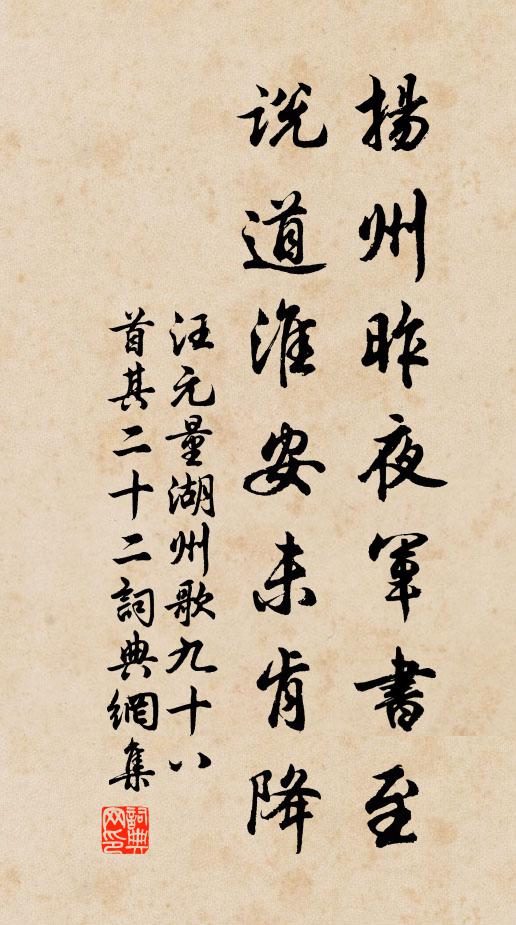 揚州昨夜軍書至
說道淮安未肯降
汪元量湖州歌九十八
首其二十二詞典網集
詞典网印